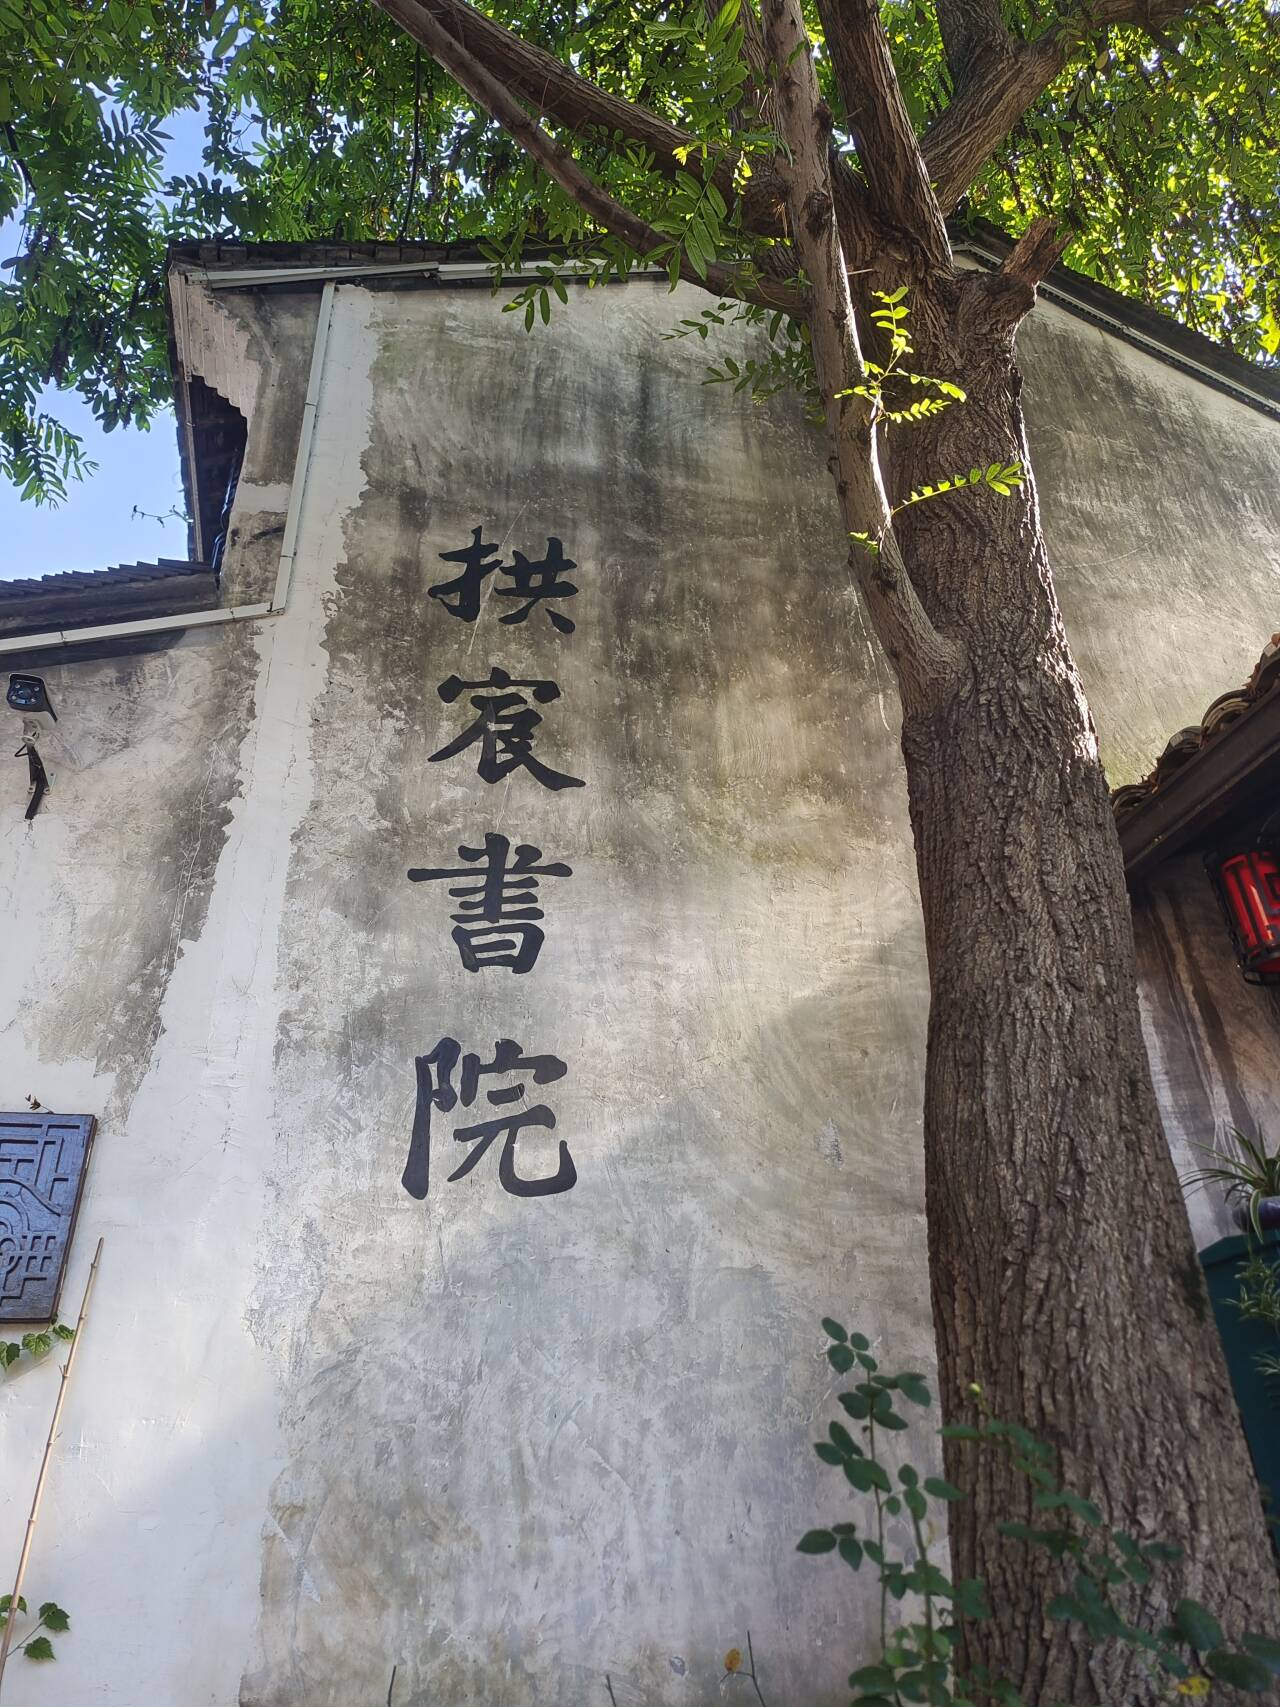 拱宸書院